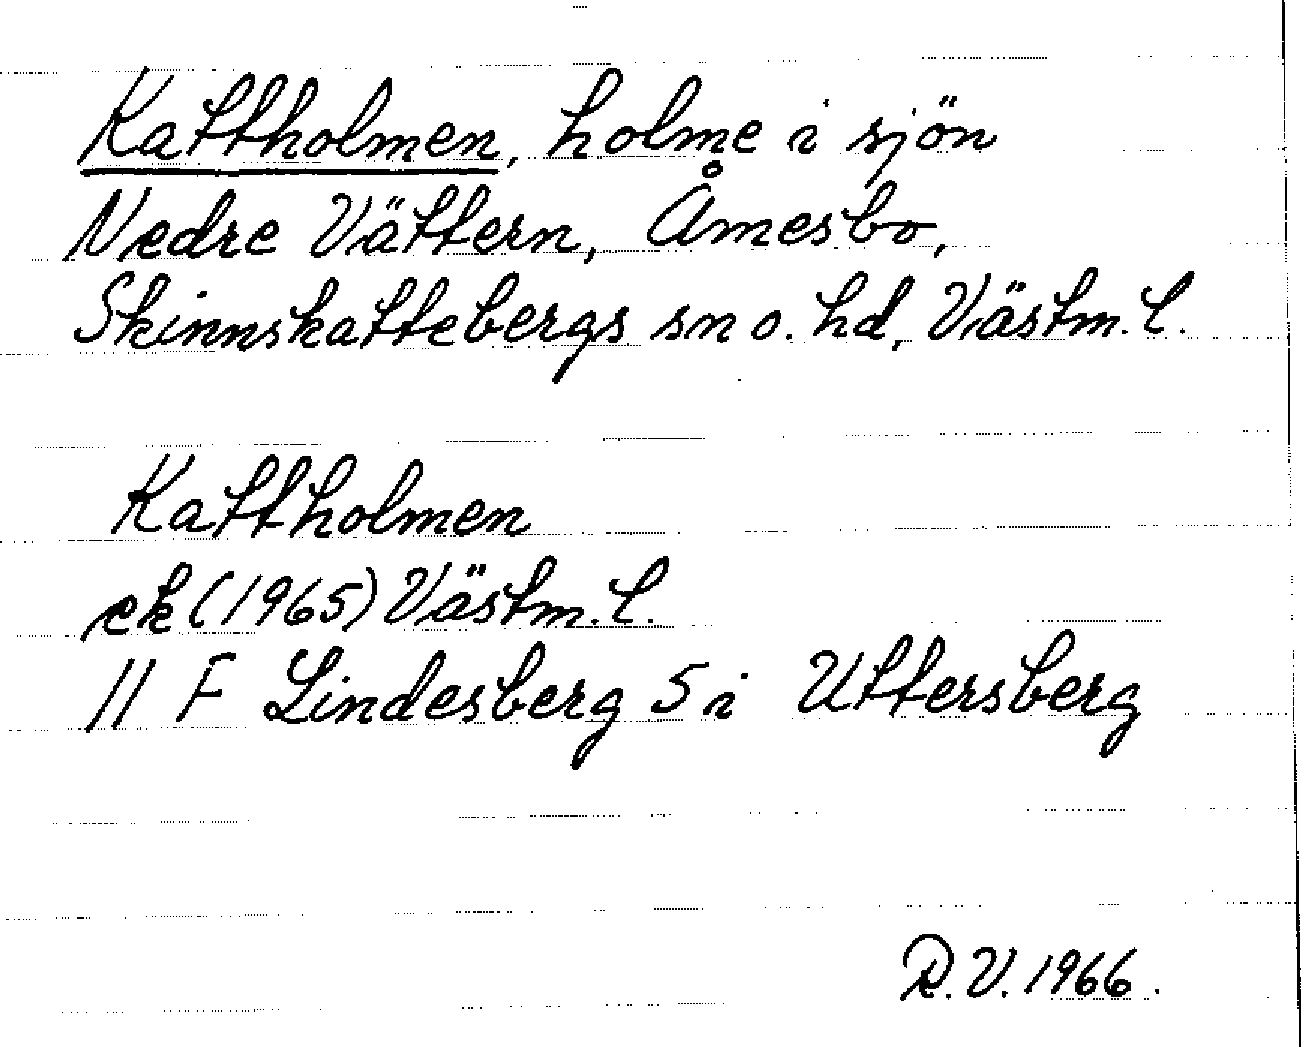 Kattholmen, holme i sjön
Nedre Vättern, Åmesbo,
Skinnskattebergs sn o. hd, Västm. l.
Kattholmen
ek (1965) Västm. l.
11 F Lindesberg 5 i Uttersberg
R. V. 1966.